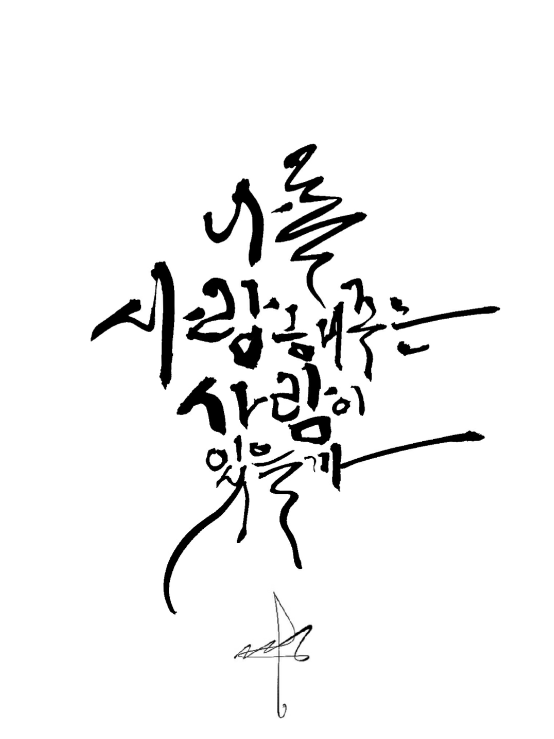 나를
사랑해주는
사람이
있을까